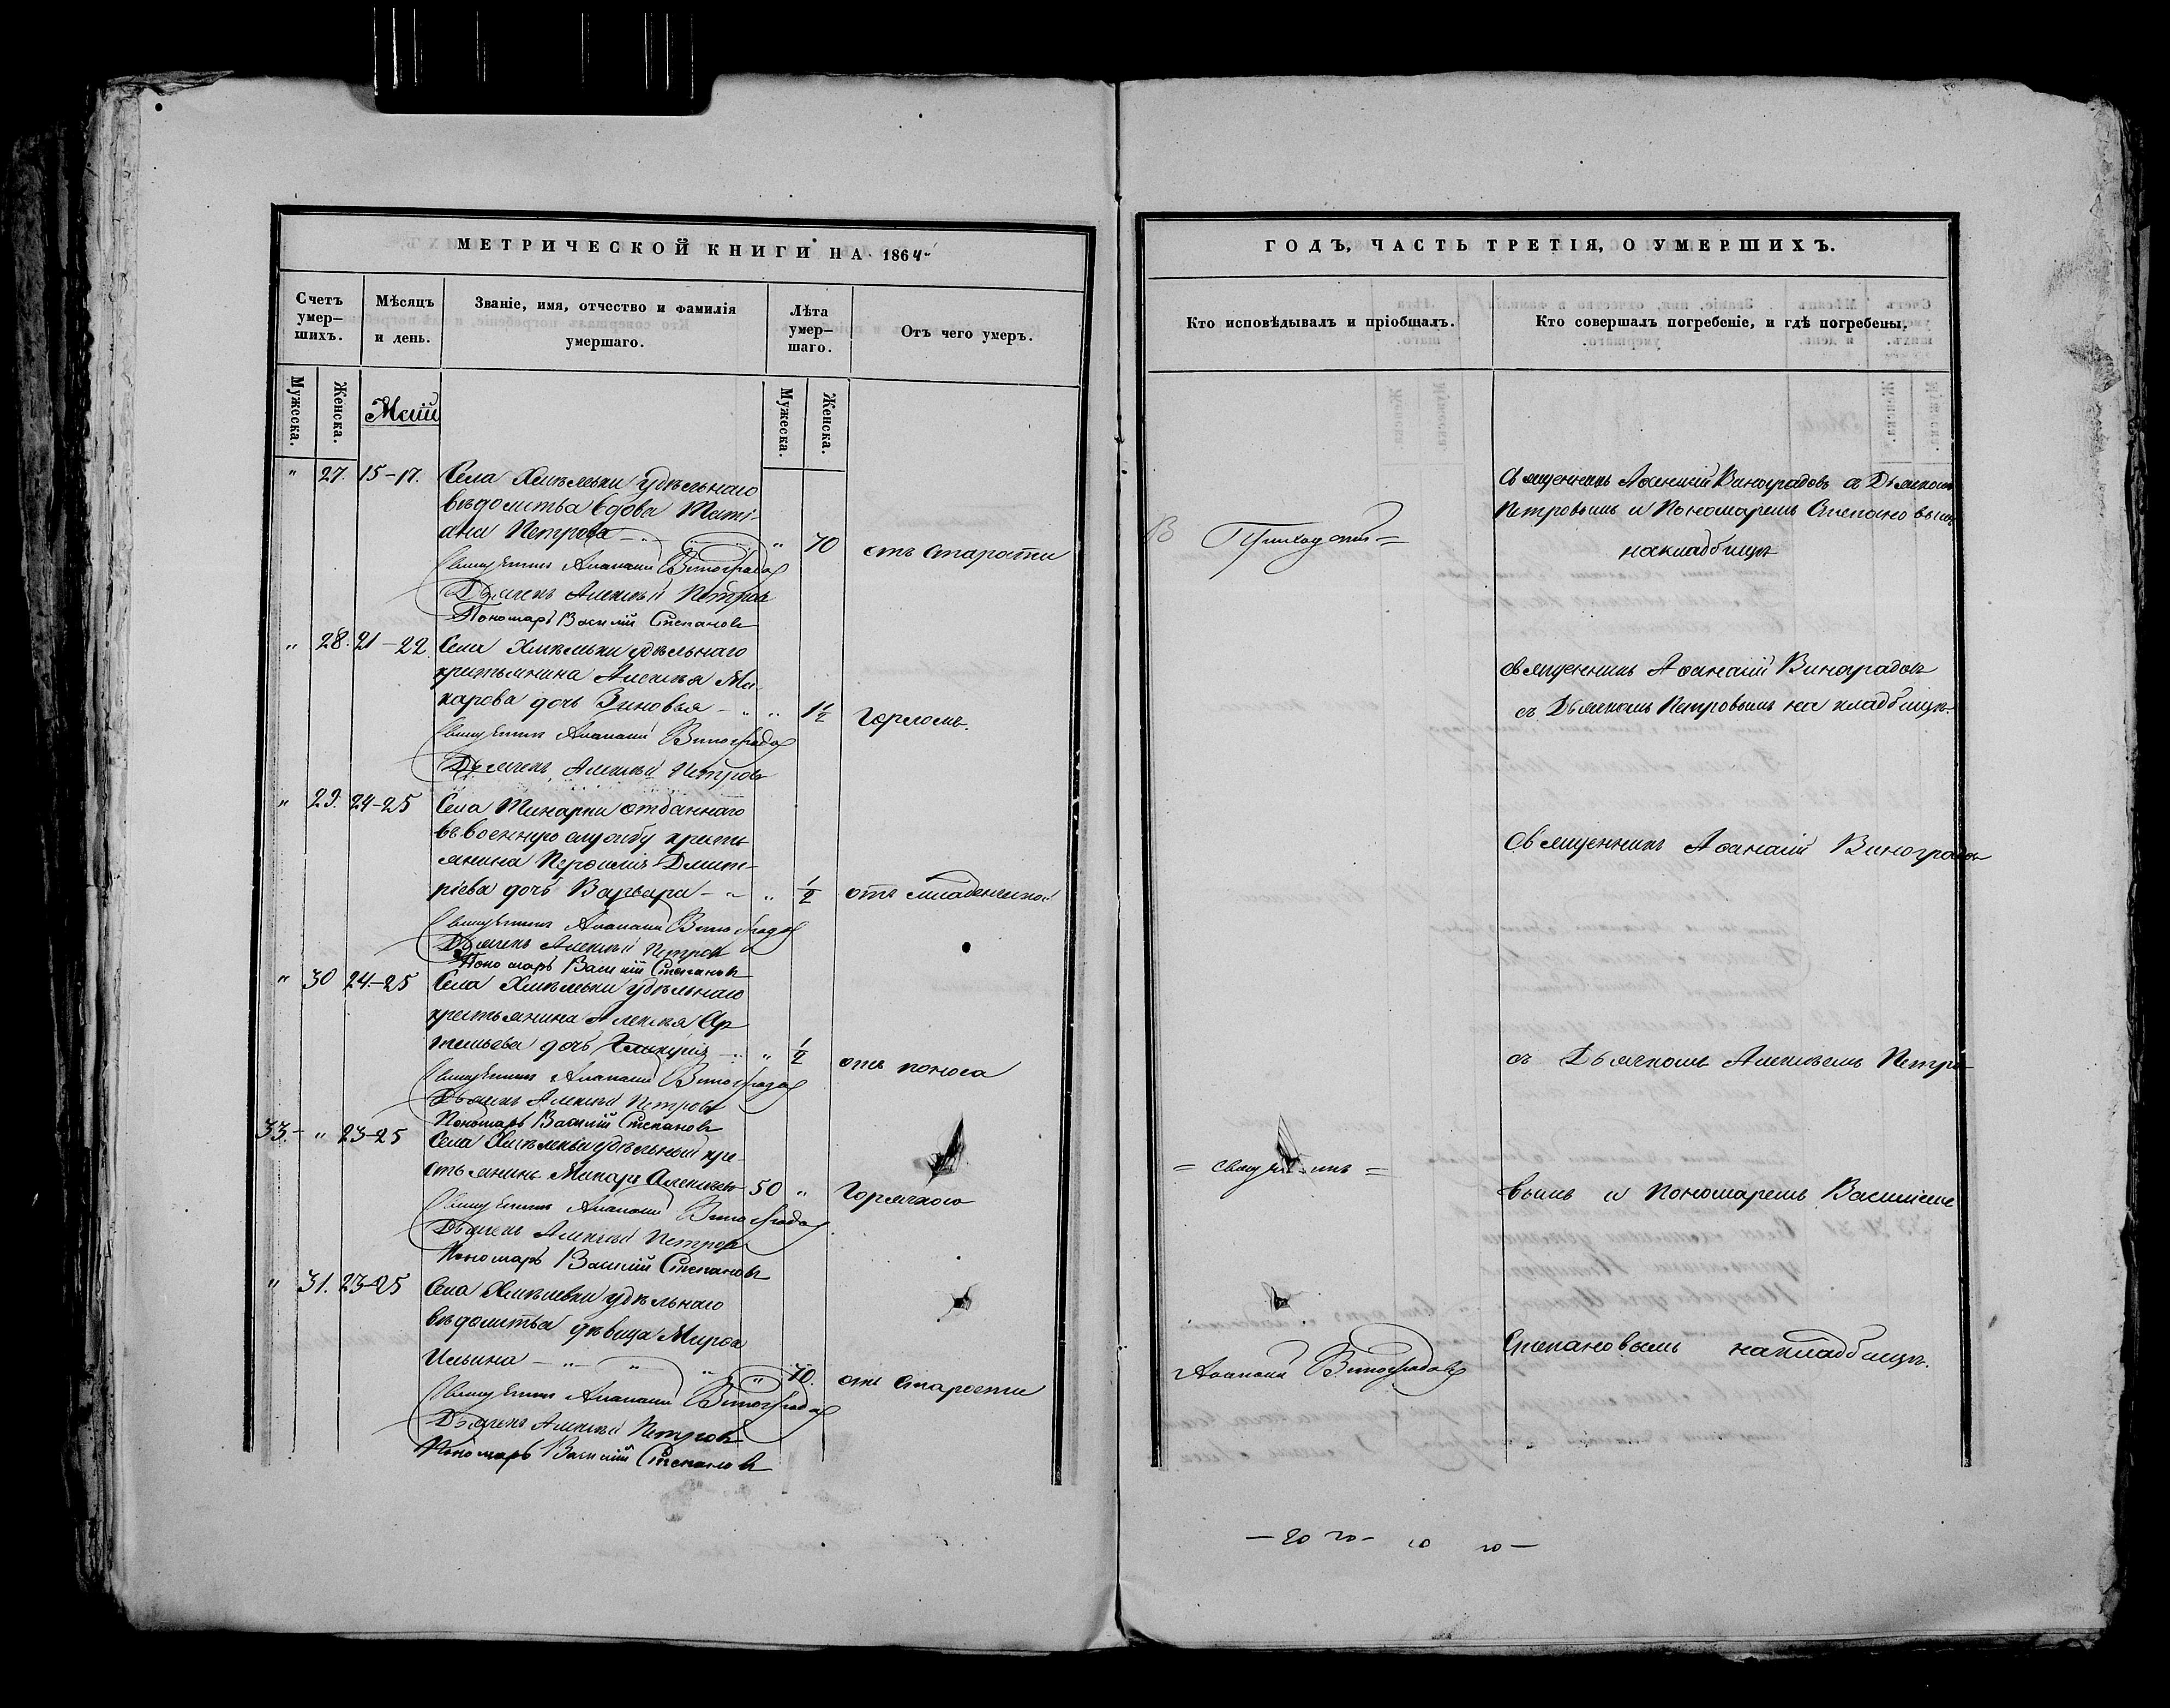 МЕТРИЧЕСКОЙ КНИГИ НА 1864
Счетъ умер—шихъ.
Мѣсяцъ и день.
Званіе, имя, отчество и фамилія умершаго.
Лѣта умер—шаго.
Отъ чего умеръ.
Мужеска.
Женска.
Маій
Мужеска.
Женска.
" 27. 15-17. Села Хмѣлевки удѣльнаго
вѣдомства вдова Таті-
ана Петрова " 70 отъ старости
Священникъ Аѳанасій Виноградовъ
Дьячекъ Алексѣй Петровъ
Пономарь Василій Степановъ
" 28. 21-22 Села Хмѣлевки удѣльнаго
крестьянина Алексѣя Ма-
карова дочь Зиновья " 1½ Горломъ.
Священникъ Аѳанасій Виноградовъ
Дьячекъ Алексѣй Петровъ
" 29. 24-25 Села отданнаго
въ военную службу кресть
янина Дмит-
ріева дочь Варвара " ½ отъ младенческой
Священникъ Аѳанасій Виноградовъ
Дьячекъ Алексѣй Петровъ
Пономарь Василій Степановъ
" 30 24-25 Села Хмѣлевки удѣльнаго
крестьянина Алексѣя Ар
темьева дочь " ½ отъ поноса
Священникъ Аѳанасій Виноградовъ
Дьячекъ Алексѣй Петровъ
Пономарь Василій Степановъ
33. " 23-25 Села Хмѣлевки удѣльный кре-
стьянинъ Макаръ Алексѣевъ 50 " Горячкою
Священникъ Аѳанасій Виноградовъ
Дьячекъ Алексѣй Петровъ
Пономарь Василій Степановъ
" 31. 23-25 Села Хмѣлевки удѣльнаго
вѣдомства дѣвица Марѳа
Ильина " 70. отъ старости
Священникъ Аѳанасій Виноградовъ
Дьячекъ Алексѣй Петровъ
Пономарь Василій Степановъ
ГОДЪ, ЧАСТЬ ТРЕТІЯ, О УМЕРШИХЪ.
Кто исповѣдывалъ и пріобщалъ.
Кто совершалъ погребеніе, и гдѣ погребены.
Священникъ Аѳанасій Виноградовъ съ Дьячкомъ
Петровымъ и Пономаремъ Степановымъ
на кладбищѣ
Приходскій
священникъ Аѳанасій Виноградовъ
съ Дьячкомъ Петровымъ на кладбищѣ.
Священникъ Аѳанасій Виноградовъ
съ Дьячкомъ Алексѣемъ Петро
= священникъ =
вымъ и Пономаремъ Василіемъ
Аѳанасій Виноградовъ
Степановымъ на кладбищѣ.